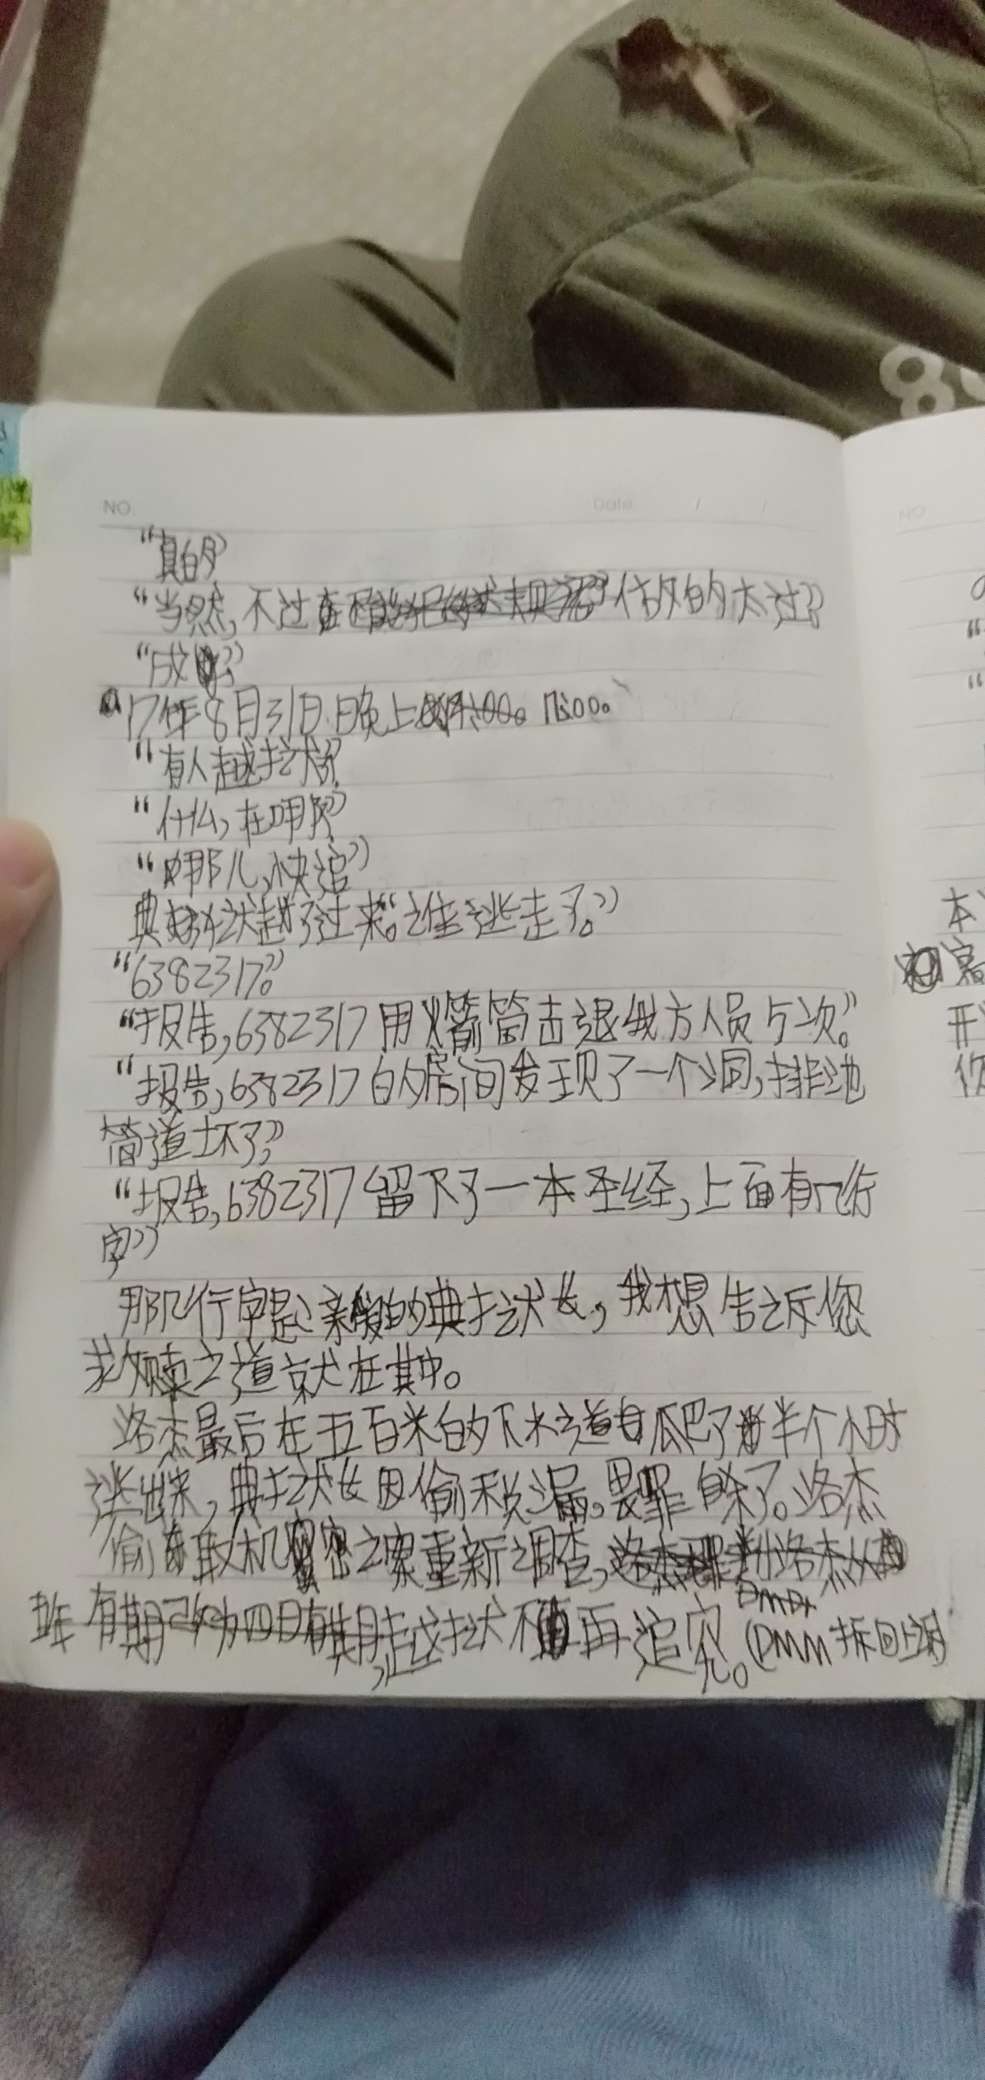 NO.
Date / /
“真的”
“当然,不过
“成
17年8月31日晚上
“有人越狱”
“什么,在哪”
“哪儿,快追”
典狱赶了过来。“谁逃走了。”
“6382317。”
“报告,6382317用火箭筒击退我方人员5次。”
“报告,6382317的房间发现了一个洞,排池
筒道坏了”
“报告,6382317留下了一本圣经,上面有几行
字”
那几行字是:亲爱的典狱长,我想告诉您
救赎之道就在其中。
洛杰最后在五百米的下水道爬了半个小时
逃出来,典狱长因偷税漏,畏罪自杀了。洛杰
偷取机密之案重新调查,
有期越狱不再追究。(DMM拆回上海)
NO
89